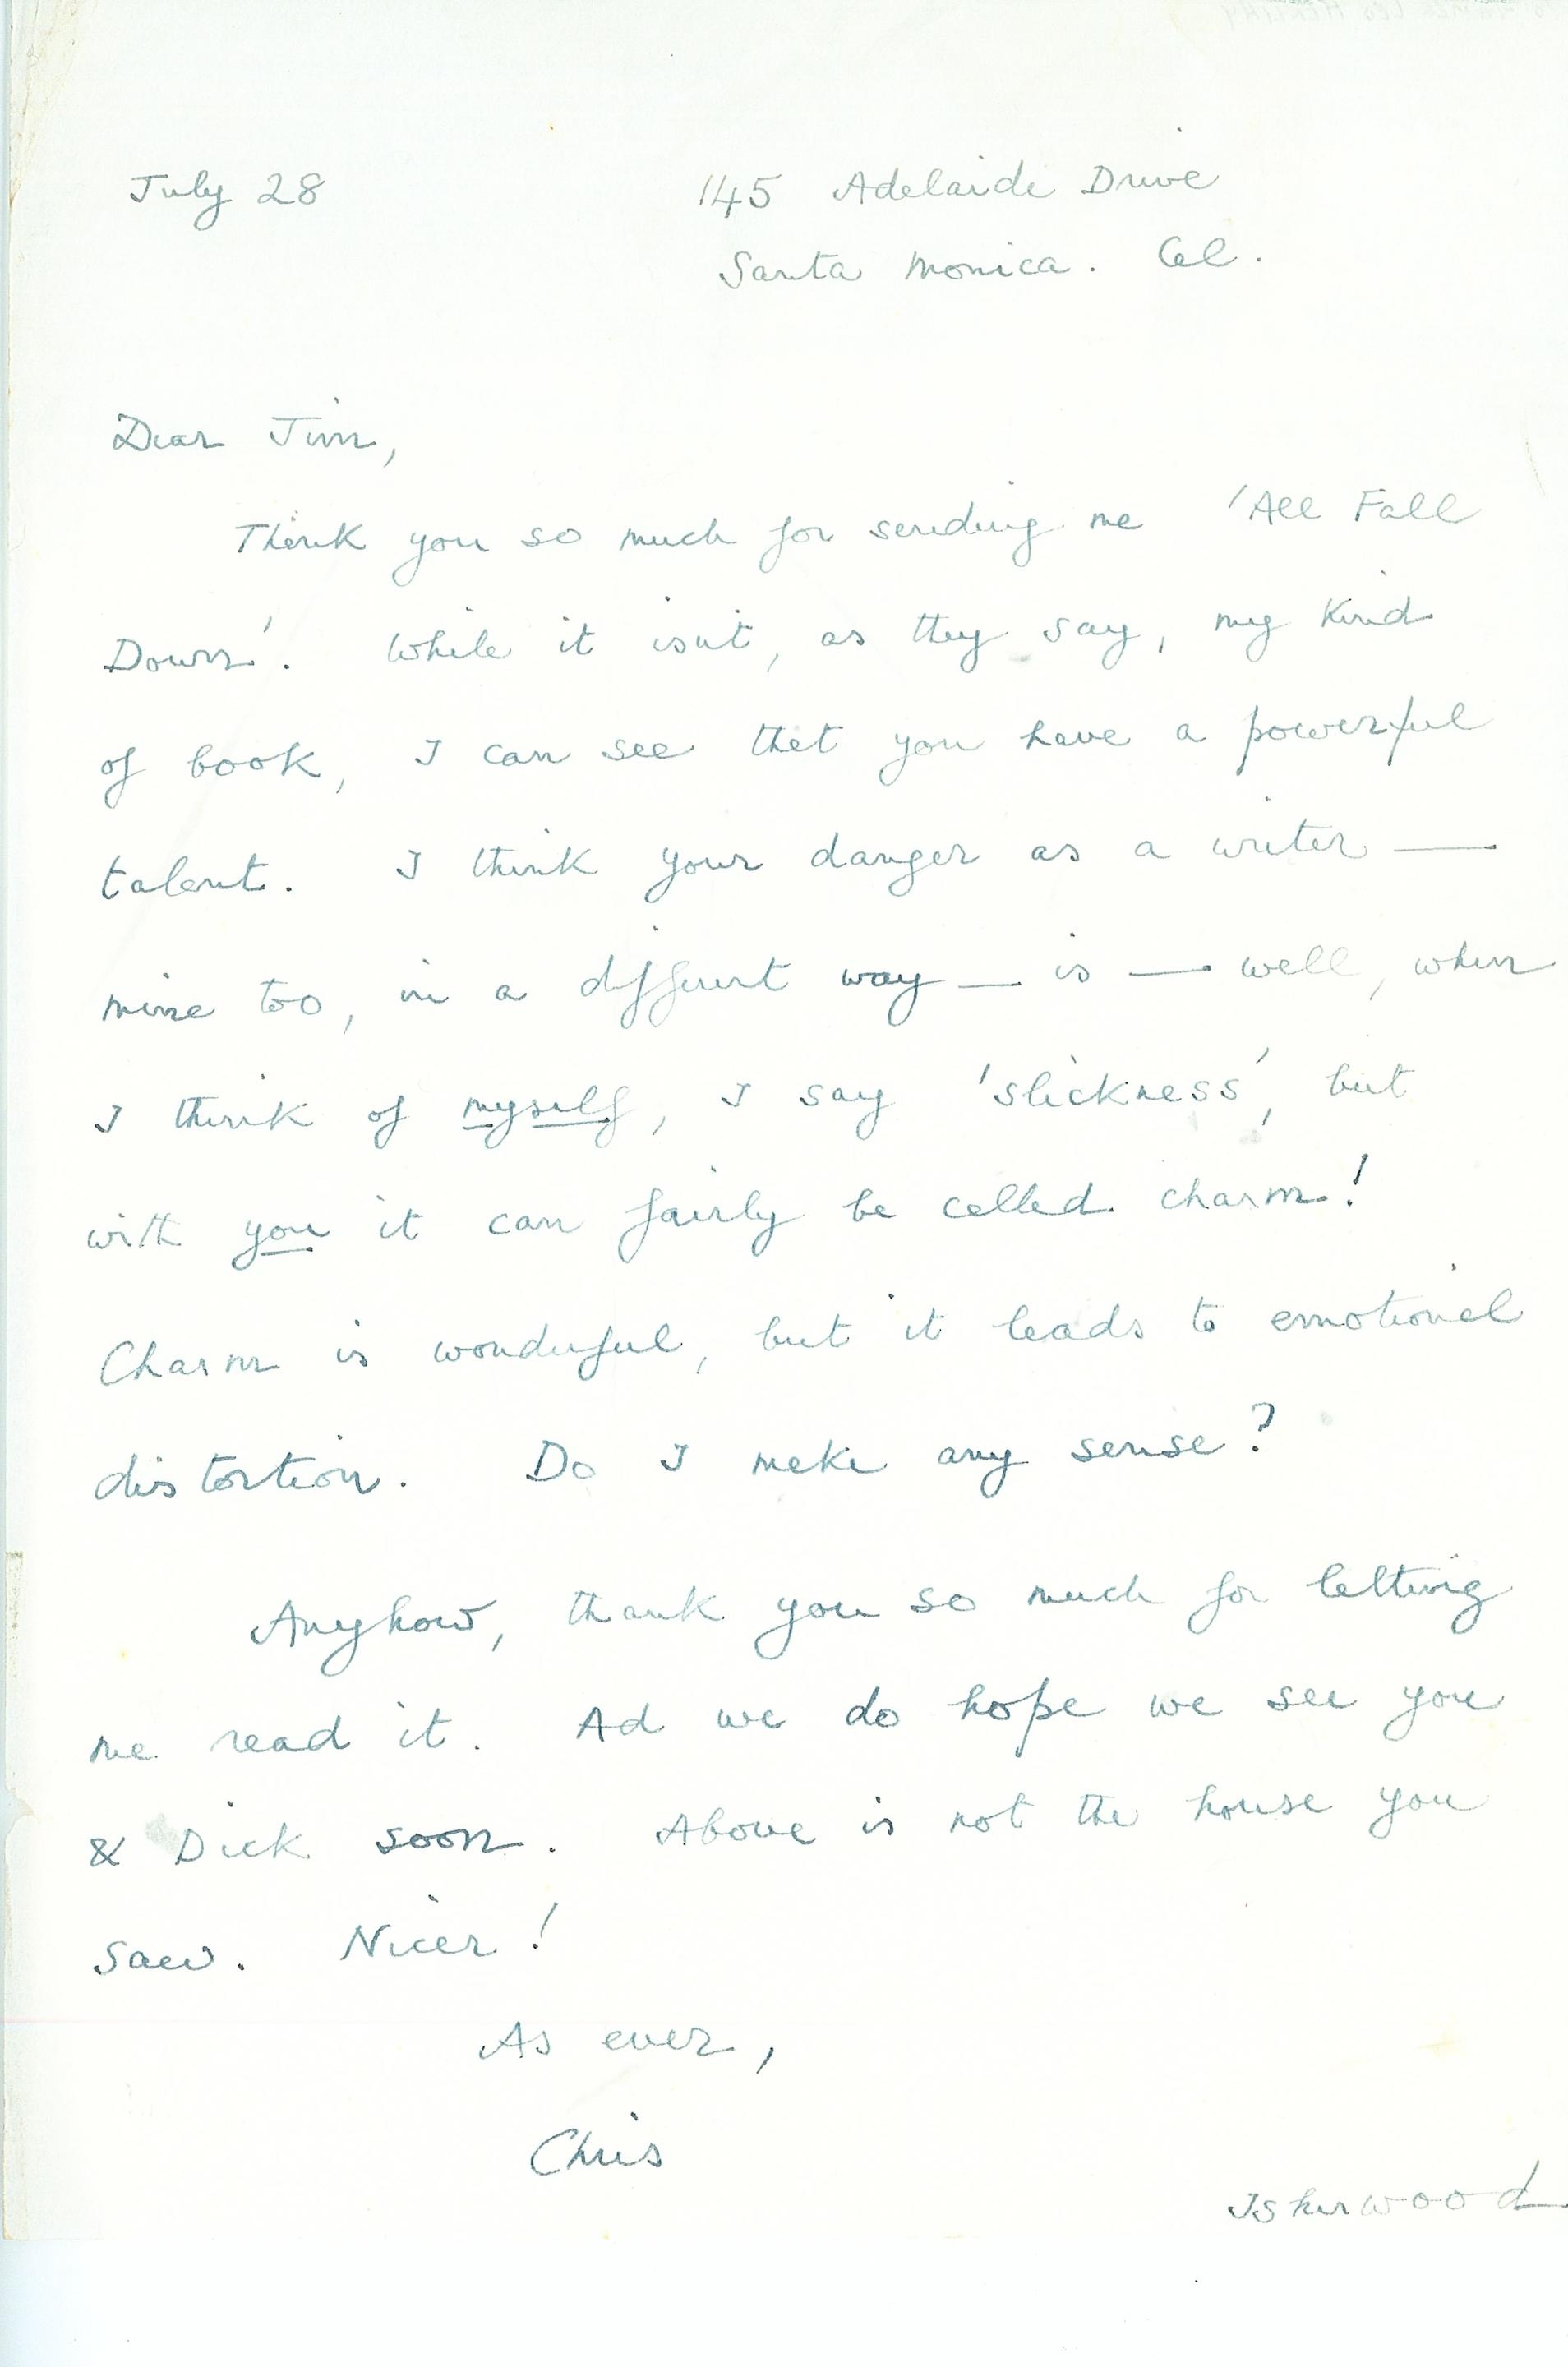 July 28 145 Adelaide Drive
Santa Monica. Cal.
Dear Jim,
Thank you so much for sending me 'All Fall
Down'. While it isn't, as they say, my kind
of book, I can see that you have a powerful
talent. I think your danger as a writer —
mine too, in a different way — is — well, when
I think of myself, I say 'slickness', but
with you it can fairly be called charm!
Charm is wonderful, but it leads to emotional
distortion. Do I make any sense?
Anyhow, thank you so much for letting
me read it. Ad we do hope we see you
& Dick soon. Above is not the house you
saw. Nicer!
As ever,
Chris
Isherwood